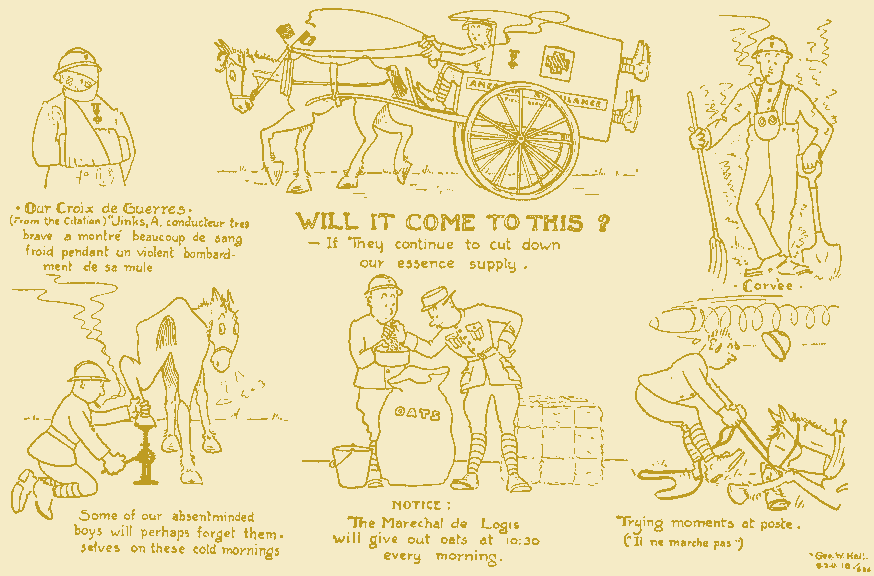 AMERICAN AMBULANCE
· Our Croix de Guerres ·
(From the Citation) "Jinks, A. conducteur tres
brave a montré beaucoup de sang
froid pendant un violent bombard-
ment de sa mule
WILL IT COME TO THIS ?
— If They continue to cut down
our essence supply .
- Corvée -
OATS
Some of our absentminded
boys will perhaps forget them-
selves on these cold mornings
NOTICE :
The Marechal de Logis
will give out oats at 10:30
every morning.
Trying moments at poste .
("Il ne marche pas")
Geo. W. Hall.